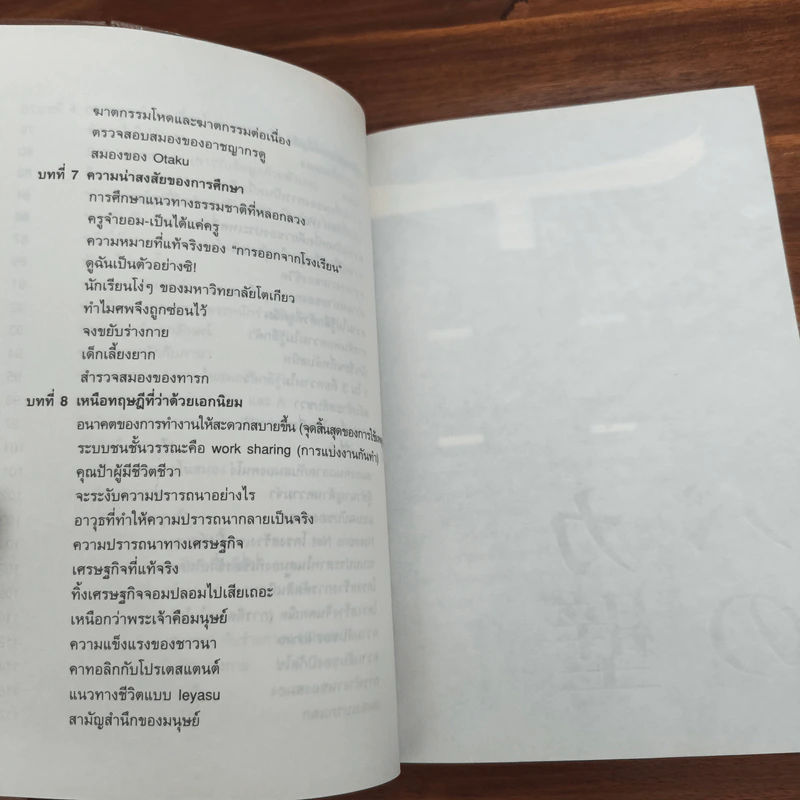 ฆาตกรรมโหดและฆาตกรรมต่อเนื่อง
ตรวจสอบสมองของอาชญากรดู
สมองของ Otaku
บทที่ 7 ความน่าสงสัยของการศึกษา
การศึกษาแนวทางธรรมชาติที่หลอกลวง
ครูจำยอม-เป็นได้แค่ครู
ความหมายที่แท้จริงของ “การออกจากโรงเรียน”
ดูฉันเป็นตัวอย่างซิ!
นักเรียนโง่ๆ ของมหาวิทยาลัยโตเกียว
ทำไมศพจึงถูกซ่อนไว้
จงขยับร่างกาย
เด็กเลี้ยงยาก
สำรวจสมองของทารก
บทที่ 8 เหนือทฤษฎีที่ว่าด้วยเอกนิยม
อนาคตของการทำงานให้สะดวกสบายขึ้น (จุดสิ้นสุดของการใช้
ระบบชนชั้นวรรณะคือ work sharing (การแบ่งงานกันทำ)
คุณป้าผู้มีชีวิตชีวา
จะระงับความปรารถนาอย่างไร
อาวุธที่ทำให้ความปรารถนากลายเป็นจริง
ความปรารถนาทางเศรษฐกิจ
เศรษฐกิจที่แท้จริง
ทิ้งเศรษฐกิจจอมปลอมไปเสียเถอะ
เหนือกว่าพระเจ้าคือมนุษย์
ความแข็งแรงของชาวนา
คาทอลิกกับโปรเตสแตนต์
แนวทางชีวิตแบบ Ieyasu
สามัญสำนึกของมนุษย์